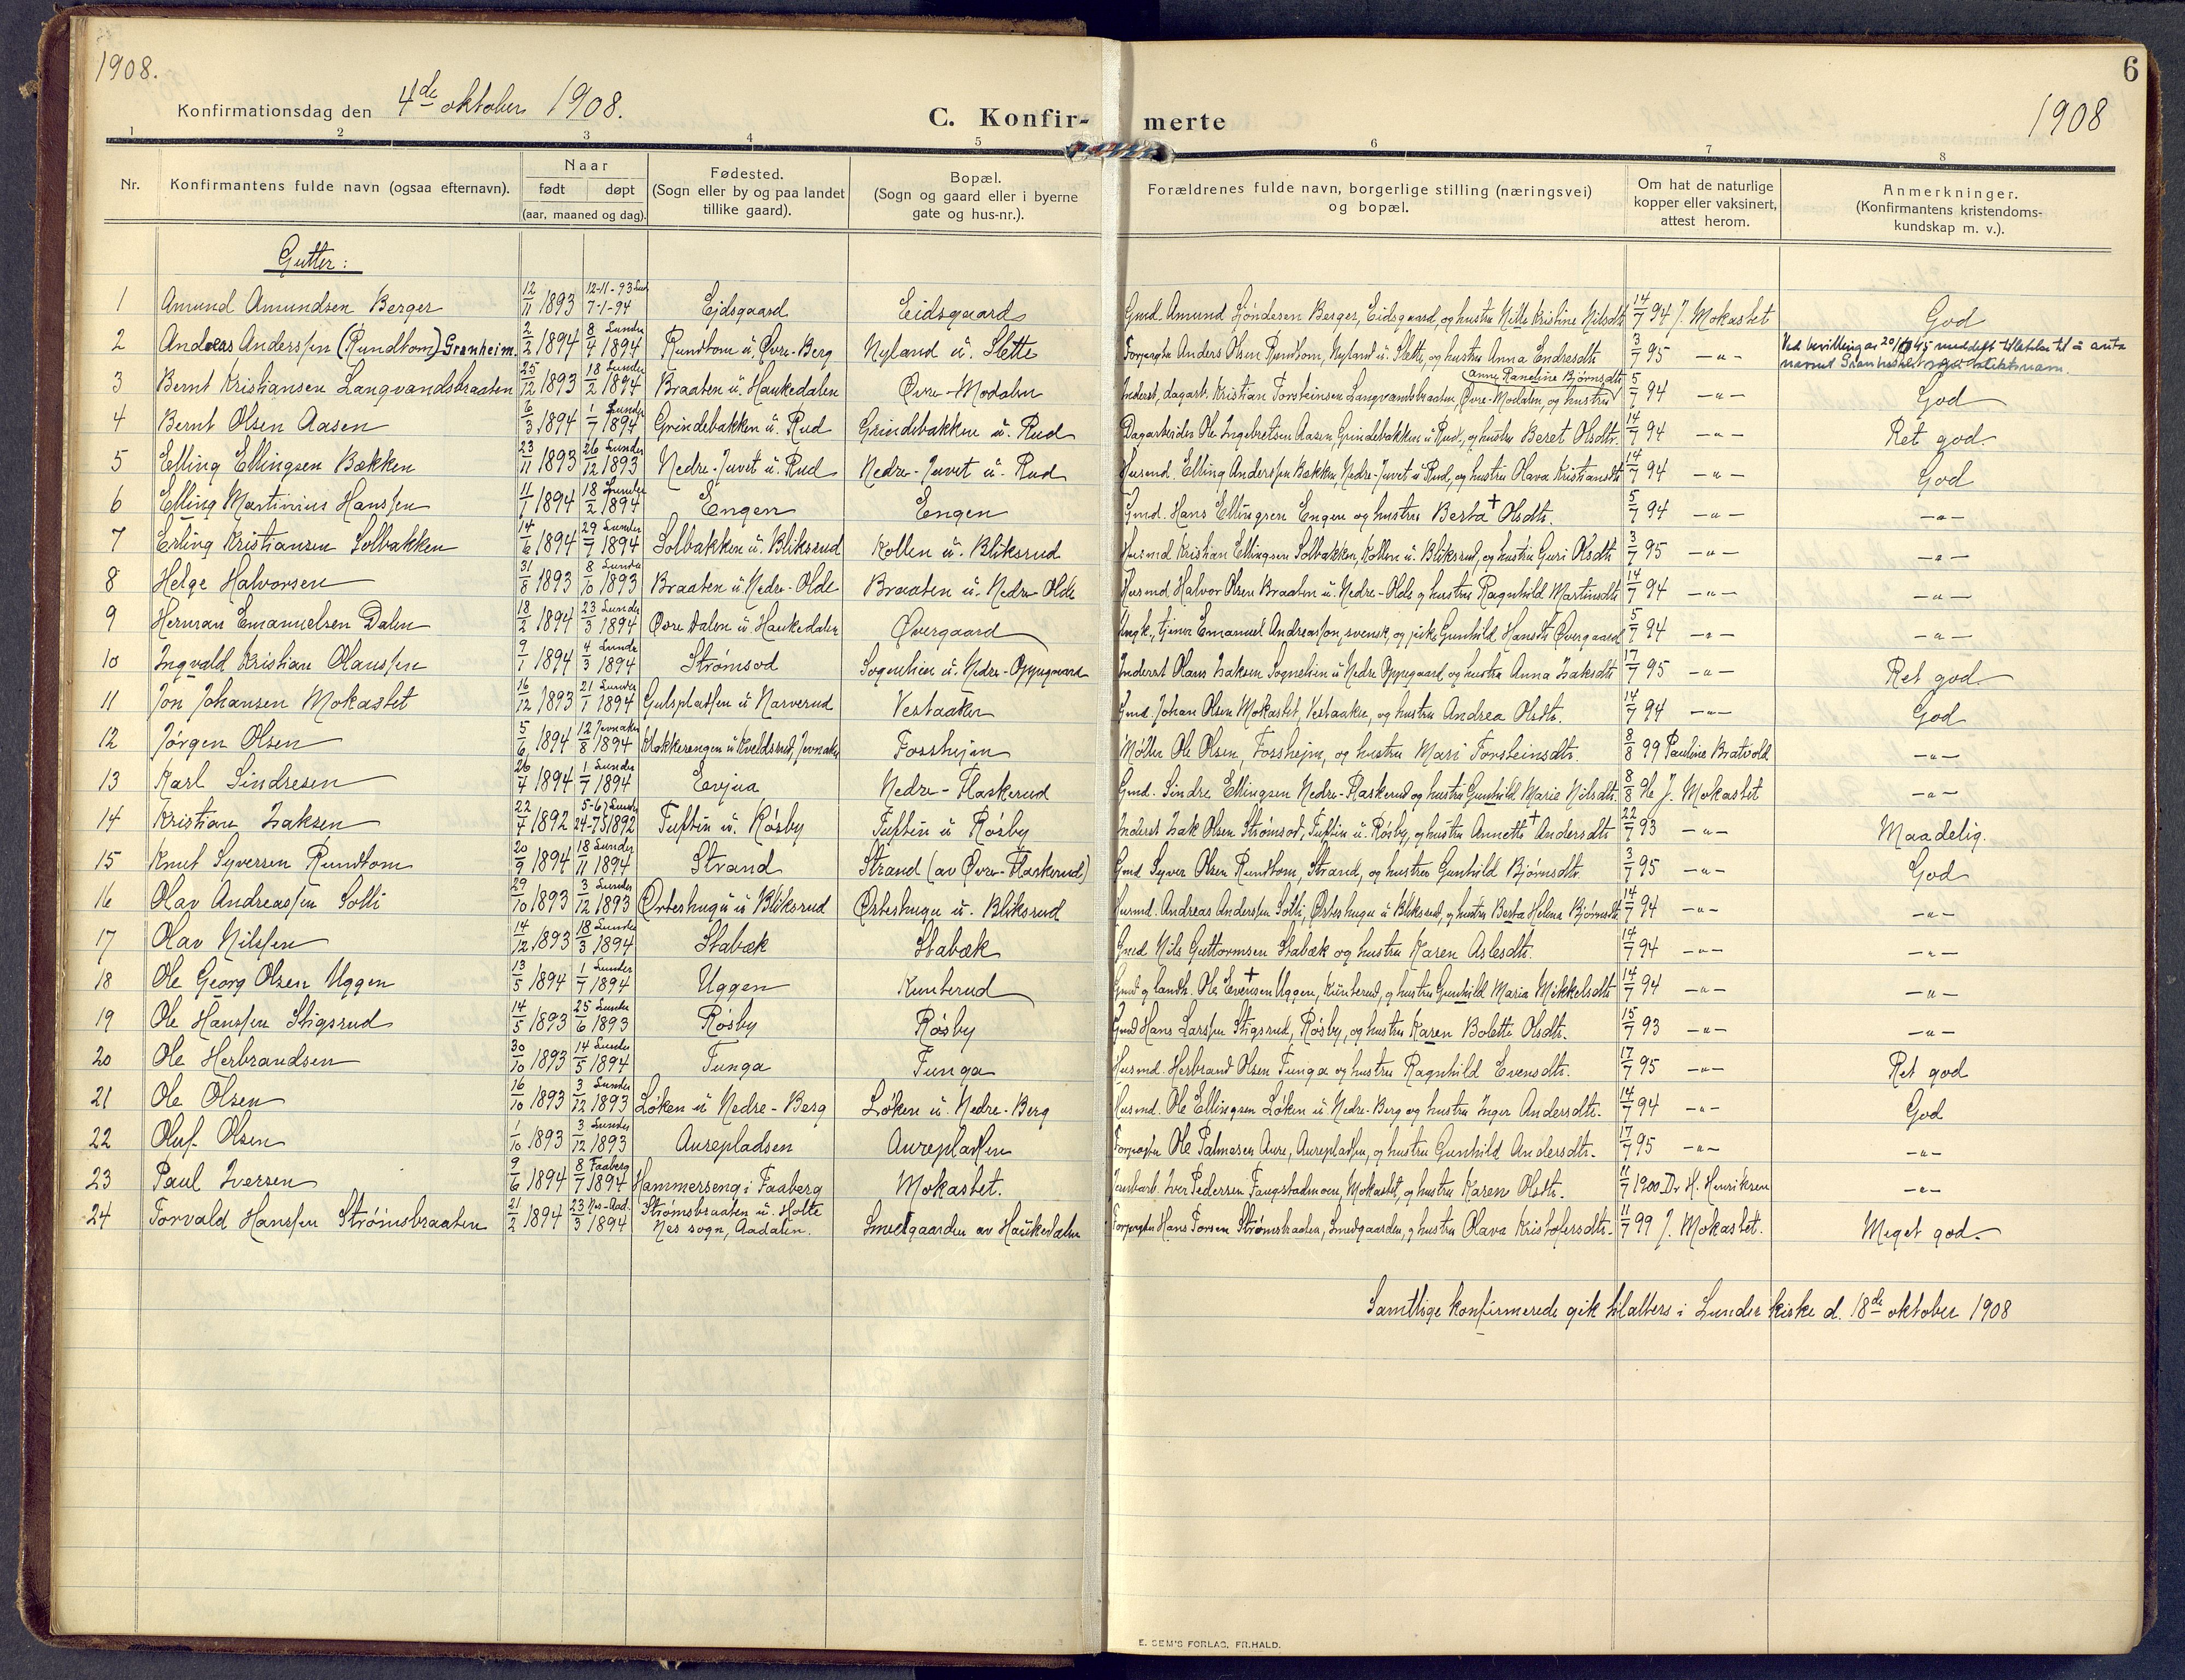 1908.
6
Konfirmationsdag den 4de oktober 1908.
C. Konfir- merte
1908
1 2 3 4 5 6 7 8
Nr.
Konfirmantens fulde navn (ogsaa efternavn).
Naar
født døpt
(aar, maaned og dag).
Fødested.
(Sogn eller by og paa landet
tillike gaard).
Bopæl.
(Sogn og gaard eller i byerne
gate og hus-nr.).
Forældrenes fulde navn, borgerlige stilling (næringsvei)
og bopæl.
Om hat de naturlige
kopper eller vaksinert,
attest herom.
Anmerkninger.
(Konfirmantens kristendoms-
kundskap m. v.).
Gutter:
1 Amund Amundsen Berger 12/11 1893 12-11-93 7-1-94 Eidsgaard Eidsgaard Gmd. Amund Høndesen Berger, Eidsgaard, og hustru Nille Kristine Nilsdtr. 14/7 94 J. Mokastet God
2 Andreas Anderssen (Rundtom) Granheim. 2/2 1894 8/4 1894 Lunder Rundtom u. Øvre-Berg Nyland u. Slette Forpagter Anders Olsen Rundtom, Nyland u. Slette, og hustru Anna Endresdtr. 3/7 95 -"- Ved bevilling av 20/10 45 meddelt tillatelse til å anta navnet Granheim som slektsnavn.
3 Bernt Kristiansen Langvandsbraaten 25/12 1893 18/2 1894 Lunder Braaten u. Haukedalen Øvre-Modalen Inderst, dagarb. Kristian Torsteinsen Langvandsbraaten, Øvre-Modalen, og hustru Anne Raneline Bjørnsdtr. 5/7 94 -"- God
4 Bernt Olsen Aasen 6/3 1894 1/7 1894 Lunder Grindebakken u. Rud Grindebakken u. Rud Dagarbeider Ole Ingebretsen Aasen, Grindebakken u. Rud, og hustru Beret Olsdtr. 14/7 94 -"- Ret god.
5 Elling Ellingsen Bækken 23/11 1893 26/12 1893 Lunder Nedre-Juvet u. Rud Nedre-Juvet u. Rud Husmd. Elling Anderssen Bækken, Nedre-Juvet u. Rud, og hustru Olava Kristiansdtr. 14/7 94 -"- God
6 Elling Martinius Hanssen 11/1 1894 18/2 1894 Lunder Engen Engen Gmd. Hans Ellingsen Engen og hustru Berta + Olsdtr. 5/7 94 -"- -"-
7 Erling Kristiansen Solbakken 14/6 1894 29/7 1894 Lunder Solbakken u. Bliksrud Kollen u. Bliksrud Husmd. Kristian Ellingsen Solbakken, Kollen u. Bliksrud, og hustru Guri Olsdtr. 3/7 95 -"- -"-
8 Helge Halvorsen 31/8 1893 8/10 1893 Lunder Braaten u. Nedre-Olde Braaten u. Nedre Olde Husmd. Halvor Olsen Braaten u. Nedre-Olde og hustru Ragnhild Martinsdtr. 14/7 94 -"- -"-
9 Herman Emanuelsen Dalen 18/2 1894 23/3 1894 Lunder Øvre Dalen u. Haukedalen Øvergaard Ungk., tjener Emanuel Andreasson, svensk, og pike Gunhild Hansdtr. Øvergaard 5/7 94 -"- -"-
10 Ingvald Kristian Olaussen 9/1 1894 4/3 1894 Lunder Strømsod Sognelien u. Nedre-Oppegaard Inderst Olaus Isaksen Sognelien u. Nedre Oppegaard og hustru Anna Isaksdtr. 17/7 95 -"- Ret god
11 Jon Johansen Mokastet 16/12 1893 21/1 1894 Lunder Gulsplassen u. Narverud Vestaaker Gmd. Johan Olsen Mokastet, Vestaaker, og hustru Andrea Olsdtr. 14/7 94 -"- God
12 Jørgen Olsen 5/6 1894 12/8 1894 Jevnaker Klokkerengen u. Kveldsrud, Jevnaker Fossheim Møller Ole Olsen, Fossheim, og hustru Mari Torsteinsdtr. 8/8 99 Pauline Bratvold -"-
13 Karl Sindresen 26/4 1894 1/7 1894 Lunder Evjua Nedre-Flaskerud Gmd. Sindre Ellingsen Nedre-Flaskerud og hustru Gunhild Marie Nilsdtr. 8/8 J. Mokastet -"-
14 Kristian Isaksen 22/4 1892 5-6 24-7 1892 Lunder Tuftin u. Røsby Tuftin u. Røsby Inderst Isak Olsen Strømsod, Tuftin u. Røsby, og hustru Annette + Andersdtr. 22/7 93 -"- Maadelig.
15 Knut Syversen Rundtom 20/9 1894 18/11 1894 Lunder Strand Strand (av Øvre-Flaskerud) Gmd. Syver Olsen Rundtom, Strand, og hustru Gunhild Bjørnsdtr. 3/7 95 -"- God
16 Olav Andreassen Solli 29/10 1893 3/12 1893 Lunder Ørteshugu u. Bliksrud Ørteshugu u. Bliksrud Husmd. Andreas Anderssen Solli, Ørteshugu u. Bliksrud, og hustru Berta Helena Bjørnsdtr. 14/7 94 -"- -"-
17 Olav Nilssen 14/12 1893 18/3 1894 Lunder Stabæk Stabæk Gmd. Nils Guttormsen Stabæk og hustru Karen Aslesdtr. 14/7 94 -"- -"-
18 Ole Georg Olsen Uggen 13/5 1894 1/7 1894 Lunder Uggen Kunterud Gmd. og landh. Ole Evensen + Uggen, Kunterud, og hustru Gunhild Maria Mikkelsdtr. 14/7 94 -"- -"-
19 Ole Hanssen Stigsrud 14/5 1893 25/6 1893 Lunder Røsby Røsby Gmd. Hans Larssen Stigsrud, Røsby, og hustru Karen Bolette Olsdtr. 15/7 93 -"- -"-
20 Ole Herbrandsen 30/10 1893 14/5 1894 Lunder Tunga Tunga Husmd. Herbrand Olsen Tunga og hustru Ragnhild Evensdtr. 17/7 95 -"- Ret god
21 Ole Olsen 16/10 1893 3/12 1893 Lunder Løken u. Nedre-Berg Løken u. Nedre-Berg Husmd. Ole Ellingsen Løken u. Nedre-Berg og hustru Inger Andersdtr. 14/7 94 -"- God
22 Oluf Olsen 1/10 1893 3/12 1893 Lunder Aurepladsen Aurepladsen Forpagter Ole Palmesen Aure, Aurepladsen, og hustru Gunhild Andersdtr. 17/7 95 -"- -"-
23 Paul Iversen 9/6 1894 8/7 1894 Faaberg Hammerseng i Faaberg Mokastet. Iver Pedersen Faugstadmoen, Mokastet, og hustru Karen Olsdtr. 11/7 1900 Dr H. Henriksen -"-
24 Torvald Hanssen Strømsbraaten 21/2 1894 23/3 1894 Nes-Aad. Strømsbraaten u. Holte Nes sogn, Aadalen. Smedgaarden av Haukedalen Forpagter Hans Torsen Strømsbraaten, Smedgaarden, og hustru Olava Kristofersdtr. 11/7 99 J. Mokastet. Meget god.
Samtlige konfirmerede gik tilalters i Lunder kirke d. 18de oktober 1908
E. SEM'S FORLAG, FR.HALD.